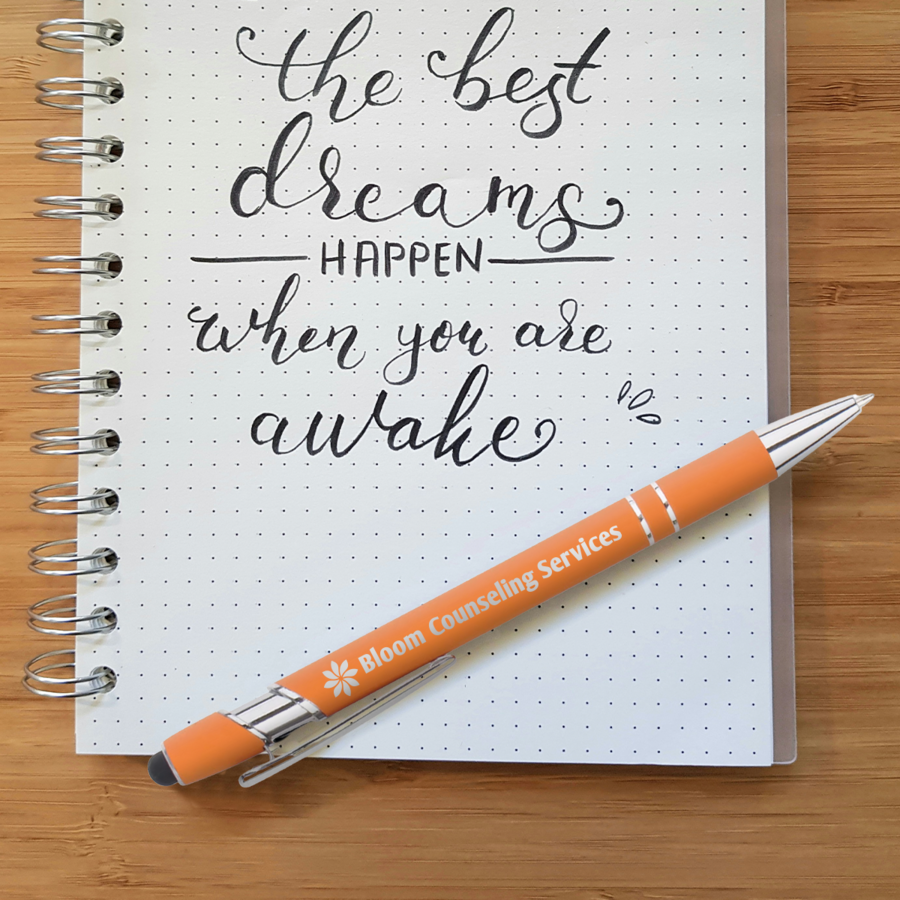 the best
dreams
HAPPEN
when you are
awake
Bloom Counseling Services